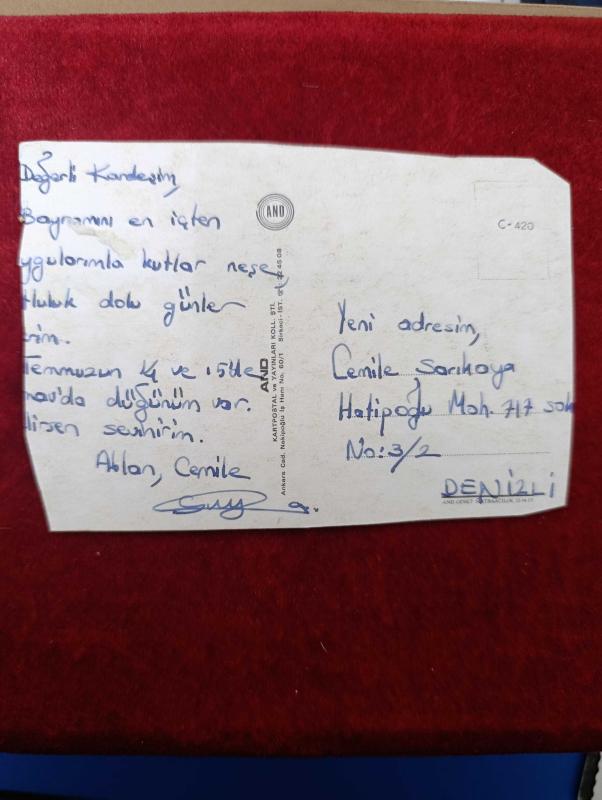 Değerli Kardeşim,
Bayramını en içten
ygularımla kutlar neşe
tluluk dolu günler
erim.
Temmuzun 14 ve 15'de
nav'da düğünüm var.
lirsen sevinirim.
Ablan, Cemile
AND
AND
KARTPOSTAL ve YAYINLARI KOLL. ŞTİ.
Ankara Cad. Nakipoğlu İş Hanı No. 60/1 Sirkeci-İST. 22 45 08
C-420
Yeni adresim,
Cemile Sarıkaya
Hatipoğlu Mah. 717 sok
No: 3/2
DENİZLİ
AND OFSET